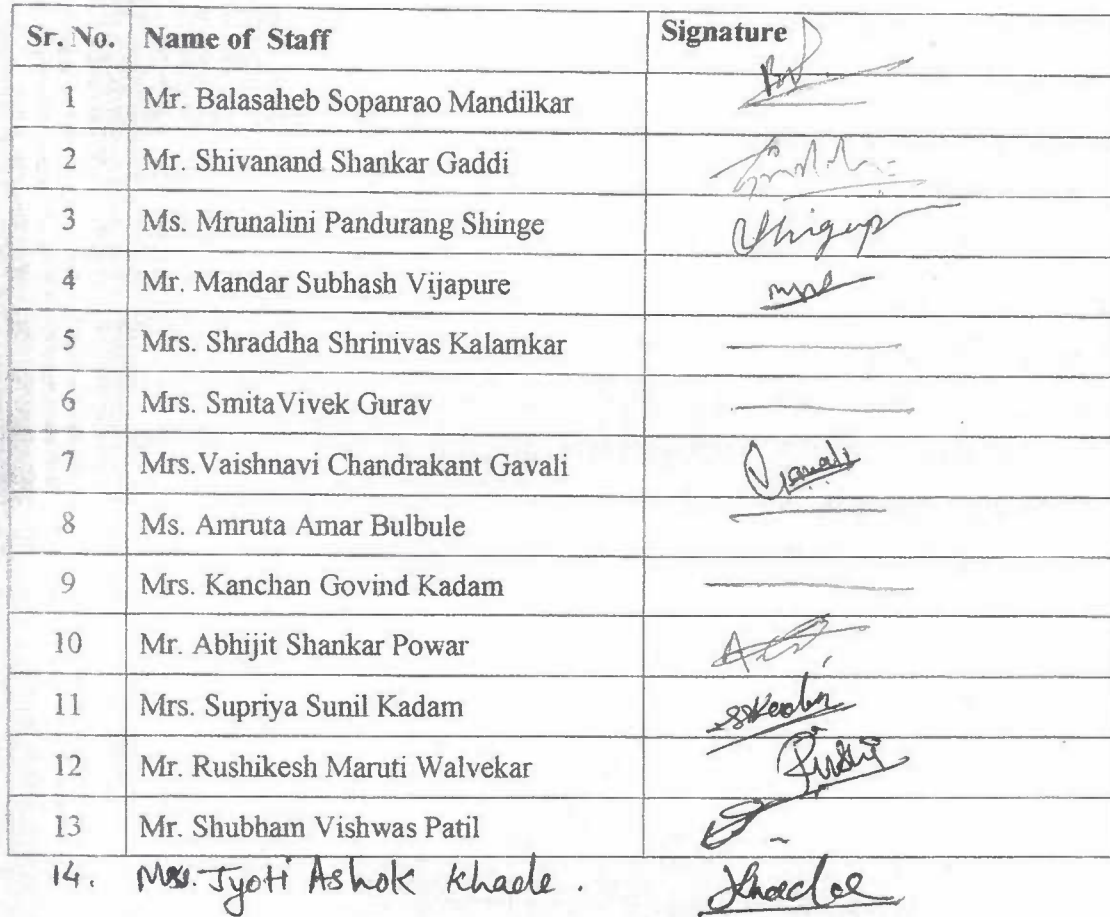 Sr. No. Name of Staff Signature
1 Mr. Balasaheb Sopanrao Mandilkar
2 Mr. Shivanand Shankar Gaddi
3 Ms. Mrunalini Pandurang Shinge
4 Mr. Mandar Subhash Vijapure
5 Mrs. Shraddha Shrinivas Kalamkar
6 Mrs. SmitaVivek Gurav
7 Mrs.Vaishnavi Chandrakant Gavali Gavali
8 Ms. Amruta Amar Bulbule
9 Mrs. Kanchan Govind Kadam
10 Mr. Abhijit Shankar Powar
11 Mrs. Supriya Sunil Kadam
12 Mr. Rushikesh Maruti Walvekar Rushi
13 Mr. Shubham Vishwas Patil
14. Mrs. Jyoti Ashok Khade. Khade